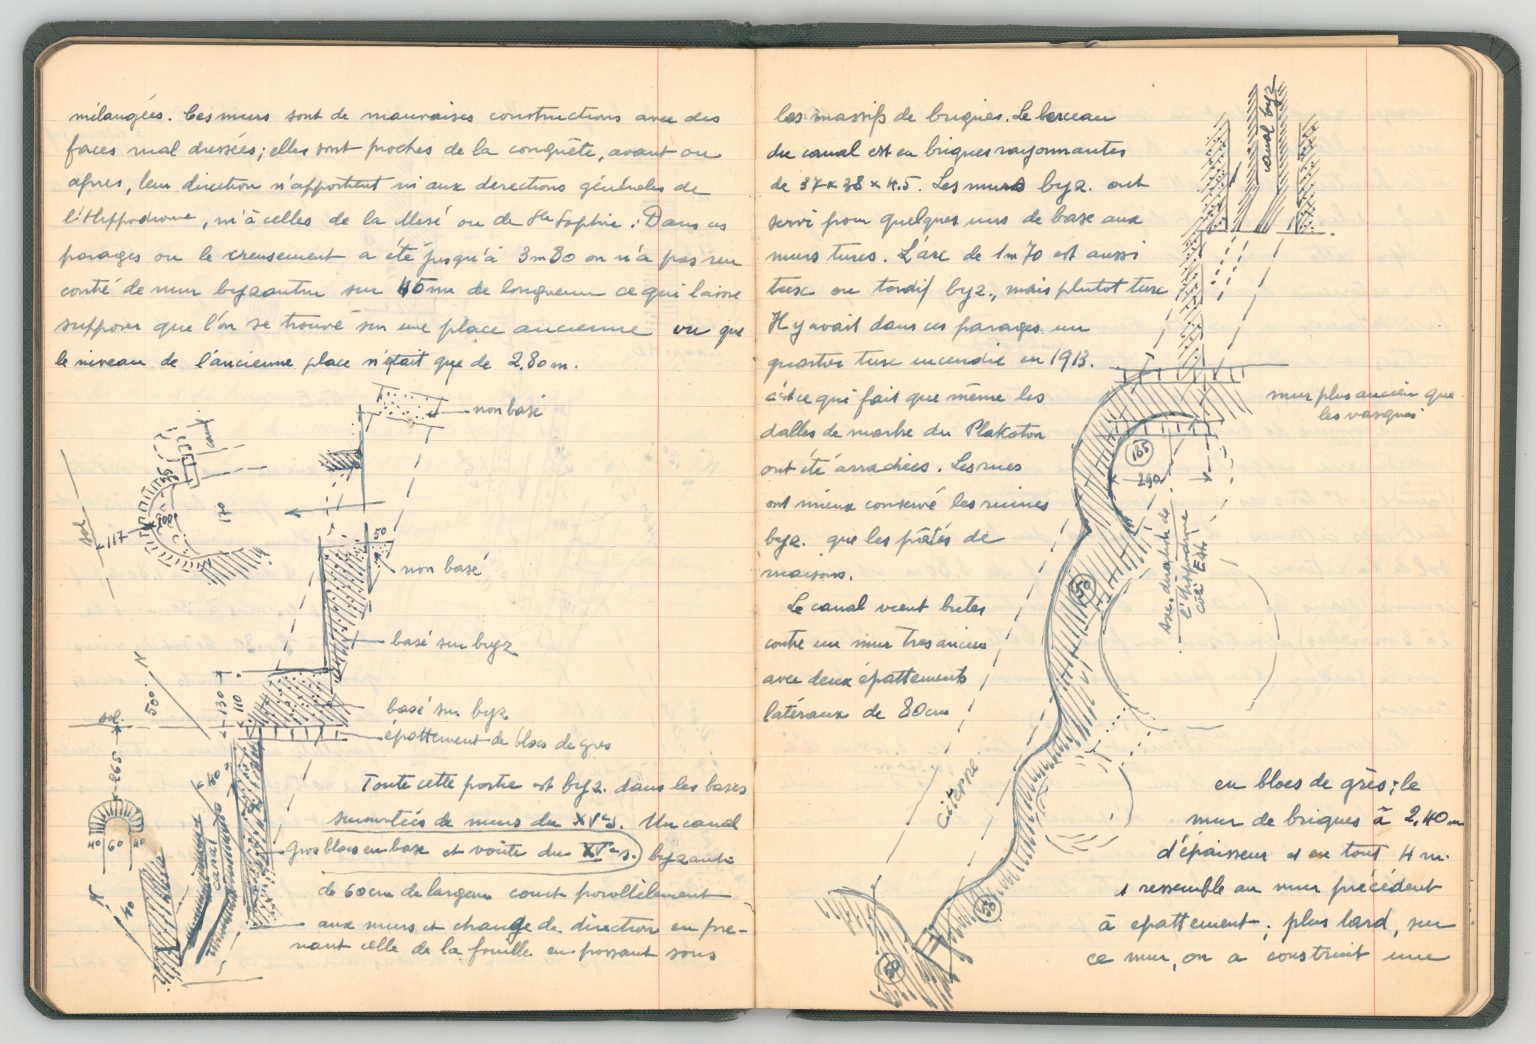 mélangées. Ces murs sont de mauvaises constructions avec des
faces mal dressées; elles sont proches de la conquête, avant ou
après, leur direction n'appartient ni aux derections générales de
l'Hippodrome, ni à celles de la Mesé ou de Ste Sophie: Dans ces
parages ou le creusement a été jusqu'à 3m80 on n'a pas ren
contré de mur byzantin sur 45m de longueur ce qui laisse
supposer que l'on se trouve sur une place ancienne vu que
le niveau de l'ancienne place n'était que de 2,80m.
non basé
170
sol
117
50
non basé
basé sur byz
N
500
130
110
sol
basé sur byz
épattement de blocs de grès
265
40
60
40
canal
N
Toute cette partie est byz. dans les bases
surmontées de murs du XVes. Un canal
gros blocs en base et voute du XVes. byzantin
de 60cm de largeur court parallèlement
aux murs et change de direction en pre-
nant celle de la fouille en passant sous
les massifs de briques. Le berceau
du canal est en briques rayonnantes
de 37 x 38 x 4.5. Les murs byz. ont
servi pour quelques uns de base aux
murs turcs. L'arc de 1m70 est aussi
turc ou tardif byz., mais plutot turc
Il y avait dans ces parages un
quartier turc incendié en 1913.
c'est ce qui fait que même les
dalles de marbre du Plakoton
ont été arrachées. Les rues
ont mieux conservé les ruines
byz. que les pâtés de
maisons.
Le canal vient butes
contre un mur tres ancien
avec deux épattements
latéraux de 80cm
canal byz
mur plus ancien que
les vasques
185
290
Axe du
l'hippodrome
coté Est
Citerne
en blocs de grès; le
mur de briques à 2,40m
d'épaisseur et en tout 4 m.
et ressemble au mur précédent
à epattement; plus tard, sur
ce mur, on a construit une